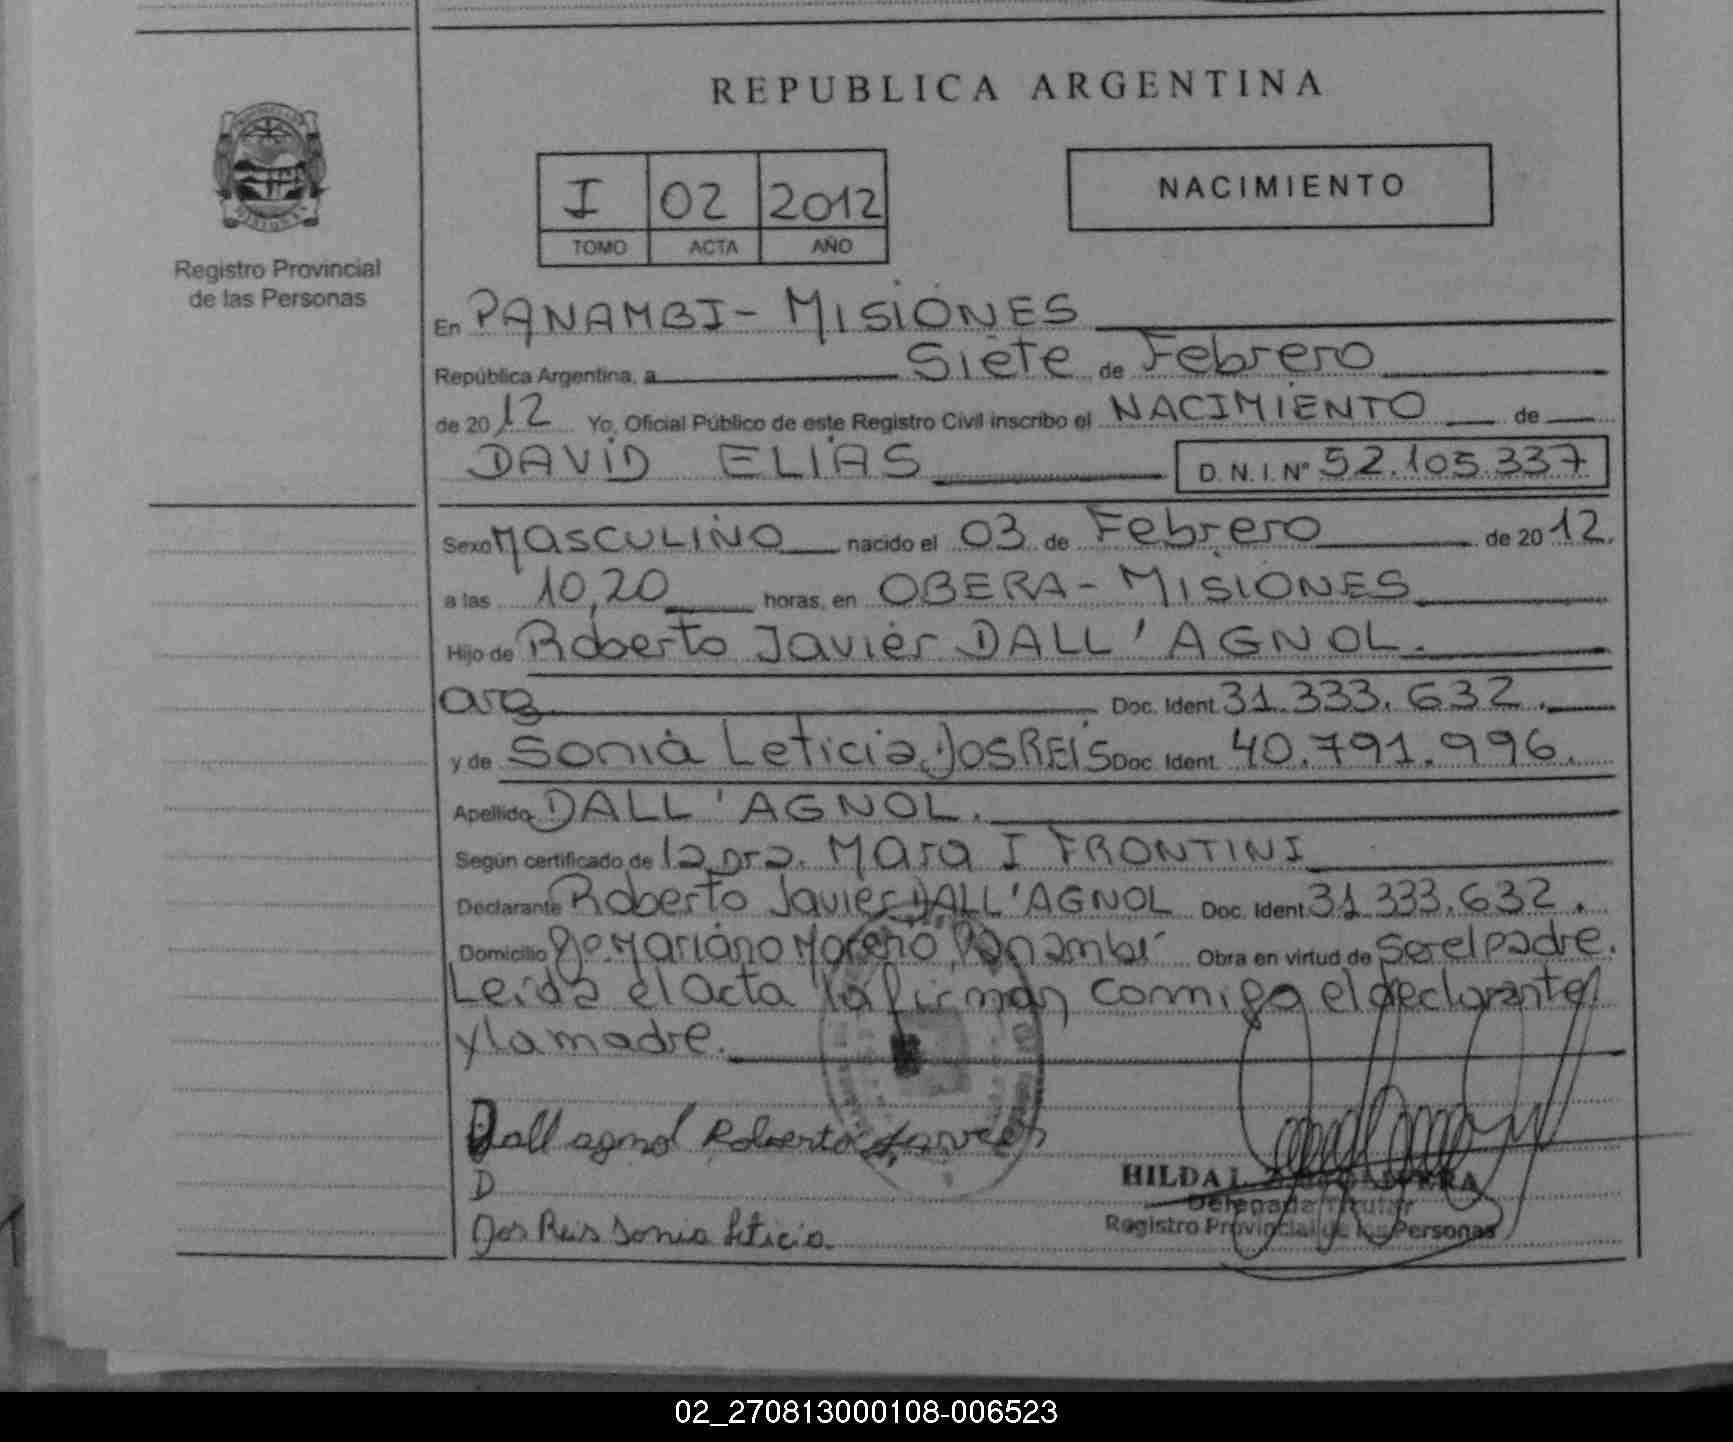 REPUBLICA ARGENTINA
I 02 2012
TOMO ACTA AÑO
NACIMIENTO
Registro Provincial
de las Personas
En PANAMBI - MISIONES
República Argentina, a Siete de Febrero
de 2012 Yo, Oficial Público de este Registro Civil inscribo el NACIMIENTO de
DAVID ELIAS D.N.I. Nº 52.105.337
Sexo MASCULINO nacido el 03 de Febrero de 2012.
a las 10,20 horas, en OBERA - MISIONES
Hijo de Roberto Javier DALL'AGNOL.
arg Doc. Ident. 31.333.632.
y de Sonia Leticia DOS REIS Doc. Ident. 40.791.996.
Apellido DALL'AGNOL.
Según certificado de la Dra. Mara I FRONTINI
Declarante Roberto Javier DALL'AGNOL Doc. Ident. 31.333.632.
Domicilio Mariano Moreno, Panambí Obra en virtud de Ser el padre.
Leida el acta la firman conmigo el declarante
y la madre.
Dall agnol Roberto Javier
D
Dos Reis Sonia Leticia
HILDA
Delegada Titular
Registro Provincial de las Personas
02_270813000108-006523